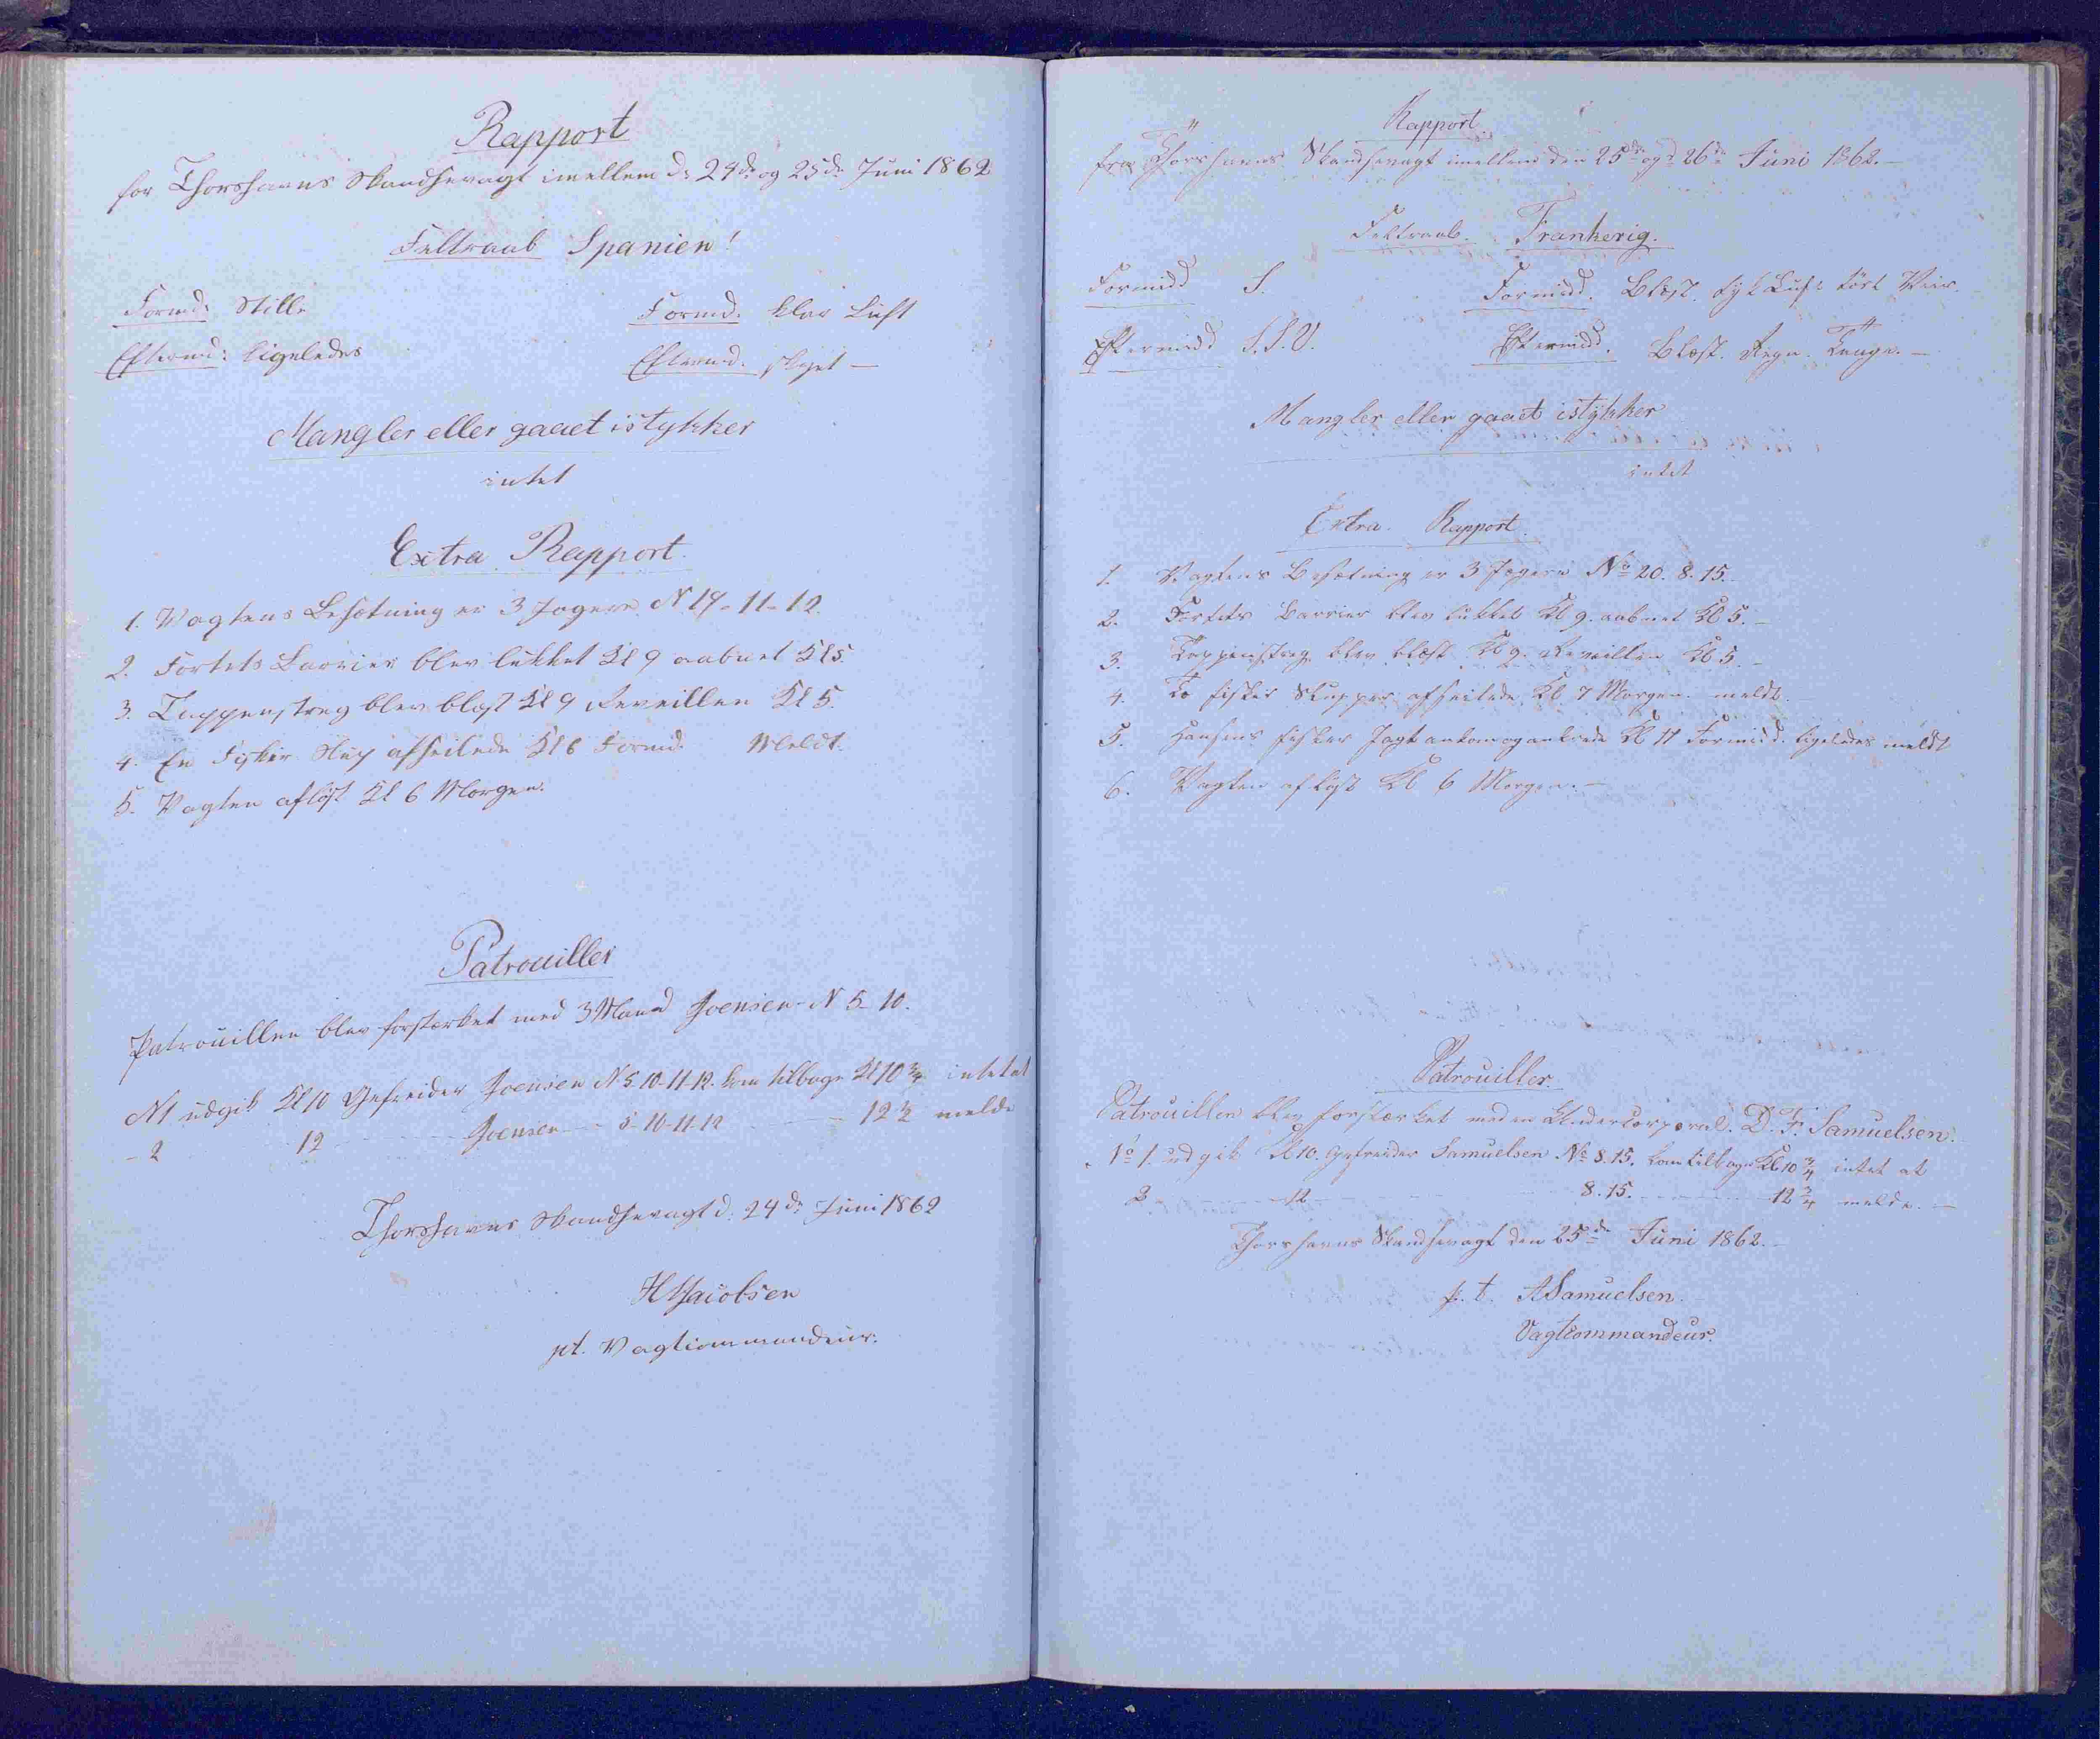 Rapport
for Thorshavns Skandsevagt imellem d: 24de og 25de Juni 1862
Feltraab Spanien!
Formd: Stille Formd. klar Luft
Efterm̅d: ligeledes Eftermd. skyet —
Mangler eller gaaet istykker
intet
Extra Rapport.
1. Vagtens Besætning er 3 Jægere N 14 - 11 - 12.
2. Fortets Barrier blev lukket Kl 9 aabnet Kl 5.
3. Tappenstreg blev blæst Kl 9 Reveillen Kl 5.
4. En Fisker Slup afseilede Kl 6 Formd. Meldt.
5. Vagten afløst Kl 6 Morgen.
Patrouiller
Patrouillen blev forstærket med 3 Mand Joensen - N 5 - 10.
N 1 udgik Kl 10 Gefreider Joensen N 5-10-11-12. kom tilbage Kl 10 3/4 intet at
- 2 12 Joensen - 5-10-11-12 - 12 1/2 melde
Thorshavns Skandsevagt d. 24de Juni 1862
HJacobsen
pt. Vagtcommandeur.
Rapport.
fra Thorshavns Skandsevagt imellem den 25de og 26de Juni 1862. —
Feltraab. Frankerig.
Formidd S. Formidd. Blæst. tyk Luft tört Veir.
Eftermidd S.S.V. Eftermidd. Blæst. Regn. Taage. —
Mangler eller gaaet istykker
intet
Extra. Rapport.
1. Vagtens Besætning er 3 Jægere No 20. 8. 15.
2. Fortets Barrier blev lukket Kl 9. aabnet Kl 5. —
3. Tappenstreg blev blæst Kl 9. Reveillen Kl 5. —
4. To fisker Slupper afseilede Kl. 7 Morgen. meldt. —
5. Hansens fisker Jagt ankom og ankrede Kl 11 Formidd. ligeledes meldt
6. Vagten afløst Kl 6 Morgen. —
Patrouiller.
Patrouillen blev forstærket med en Undercorporal. D. F. Samuelsen.
No 1. udgik Kl 10. Gefreider Samuelsen No 8. 15. kom tilbage Kl 10 3/4 intet at
2 - 12 - 8. 15. - 12 3/4 melde. —
Thorshavns Skandsevagt den 25de Juni 1862. —
p. t. ASamuelsen.
Vagtkommandeur.